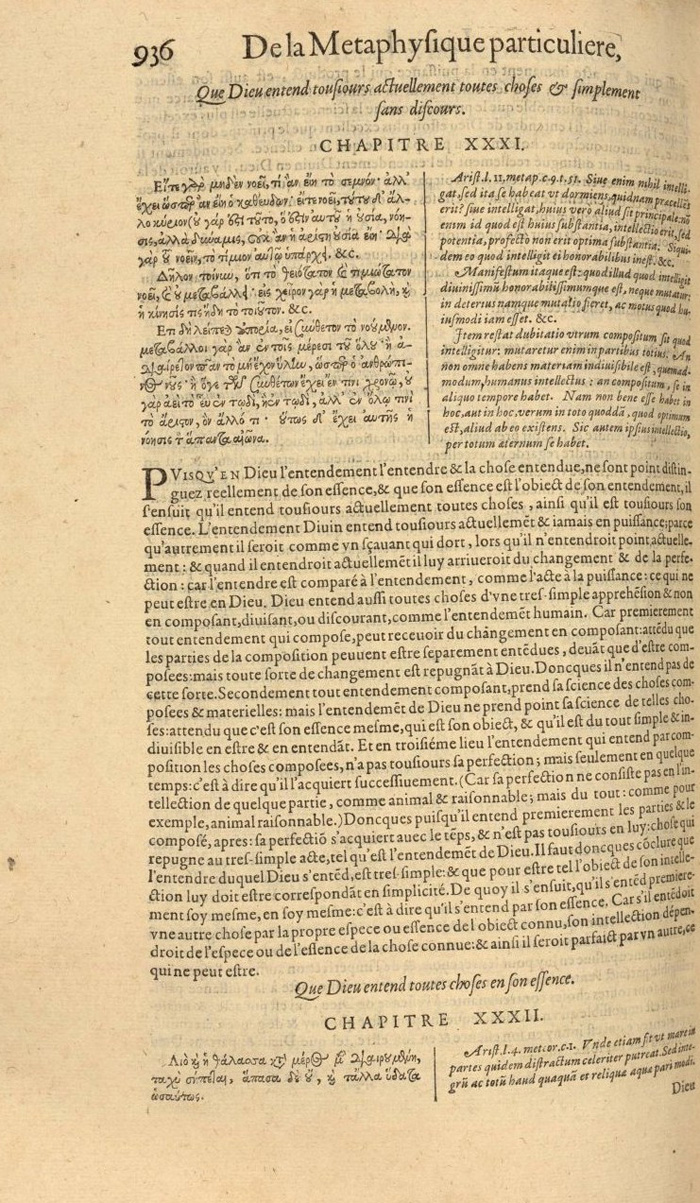 936 De la Metaphysique particuliere,
Que Dieu entend tousiours actuellement toutes choses & simplement
sans discours.
CHAPITRE XXXI.
Εἴτε γὰρ μηδὲν νοεῖ, τί ἂν εἴη τὸ σεμνόν· ἀλλ'
ἔχει ὥσπερ ἂν εἴη ὁ καθεύδων· εἴτε νοεῖ, τούτου δ' ἄλ-
λο κύριον (οὐ γάρ ἐστι τοῦτο, ὅ ἐστιν αὐτοῦ ἡ οὐσία, νόη-
σις, ἀλλὰ δύναμις, οὐκ ἂν ἡ ἀρίστη οὐσία εἴη· διὰ
γὰρ τοῦ νοεῖν, τὸ τίμιον αὐτῷ ὑπάρχει. &c.
Δῆλον τοίνυν, ὅτι τὸ θειότατον καὶ τιμιώτατον
νοεῖ, καὶ οὐ μεταβάλλει· εἰς χεῖρον γὰρ ἡ μεταβολὴ, καὶ
ἡ κίνησίς τις ἤδη τὸ τοιοῦτον. &c.
Ἔτι δὴ λείπεται ἀπορία, εἰ σύνθετον τὸ νοούμενον.
μεταβάλλοι γὰρ ἂν ἐν τοῖς μέρεσι τοῦ ὅλου· ἢ ἀ-
διαίρετον πᾶν τὸ μὴ ἔχον ὕλην, ὥσπερ ὁ ἀνθρώπι-
νος νοῦς· ἢ ὅγε τῶν συνθέτων ἔχει ἔν τινι χρόνῳ, οὐ
γὰρ ἀεὶ τὸ εὖ ἐν τῳδὶ, ἢ ἐν τῳδὶ, ἀλλ' ἐν ὅλῳ τινὶ
τὸ ἄριστον, ὂν ἄλλό τι· οὕτως δ' ἔχει αὐτῆς ἡ
νόησις τ̀ ἅπαντα αἰῶνα.
Arist. l. 11. metap. c. 9. t. 51. Siue enim nihil intelli-
gat, sed ita se habeat vt dormiens, quidnam præcellēs
erit? siue intelligat, huius vero aliud sit principale: nō
enim id quod est huius substantia, intellectio erit, sed
potentia, profecto non erit optima substantia. Siqui-
dem eo quod intelligit ei honorabilibus inest. &c.
Manifestum itaque est: quod illud quod intelligit
diuinissimū honorabilissimumque est, neque mutatur:
in deterius namque mutatio fieret, ac motus quod hu-
iusmodi iam esset. &c.
Item restat dubitatio vtrum compositum sit quod
intelligitur: mutaretur enim in partibus totius. An
non omne habens materiam indiuisibile est, quemad-
modum, humanus intellectus: an compositum, se in
aliquo tempore habet. Nam non bene esse habet in
hoc, aut in hoc, verum in toto quoddā, quod optimum
est, aliud ab eo existens. Sic autem ipsius intellectio,
per totum æternum se habet.
PVISQV'EN Dieu l'entendement l'entendre & la chose entendue, ne sont point distin-
guez reellement de son essence, & que son essence est l'obiect de son entendement, il
s'ensuit qu'il entend tousiours actuellement toutes choses, ainsi qu'il est tousiours son
essence. L'entendement Diuin entend tousiours actuellemēt & iamais en puissance; parce
qu'autrement il seroit comme vn sçauant qui dort, lors qu'il n'entendroit point actuelle-
ment: & quand il entendroit actuellemēt il luy arriueroit du changement & de la perfe-
ction: car l'entendre est comparé à l'entendement, comme l'acte à la puissance: ce qui ne
peut estre en Dieu. Dieu entend aussi toutes choses d'vne tres-simple apprehēsion & non
en composant, diuisant, ou discourant, comme l'entendemēt humain. Car premierement
tout entendement qui compose, peut receuoir du chāngement en composant: attēdu que
les parties de la composition peuuent estre separement entēdues, deuāt que d'estre com-
posees: mais toute sorte de changement est repugnāt à Dieu. Doncques il n'entend pas de
cette sorte. Secondement tout entendement composant, prend sa science des choses com-
posees & materielles: mais l'entendemēt de Dieu ne prend point sa science de telles cho-
ses: attendu que c'est son essence mesme, qui est son obiect, & qu'il est du tout simple & in-
diuisible en estre & en entendāt. Et en troisiéme lieu l'entendement qui entend par com-
position les choses composees, n'a pas tousiours sa perfection; mais seulement en quelque
temps: c'est à dire qu'il l'acquiert successiuement. (Car sa perfection ne consiste pas en l'in-
tellection de quelque partie, comme animal & raisonnable; mais du tout: comme pour
exemple, animal raisonnable.) Doncques puisqu'il entend premierement les parties & le
composé, apres: sa perfectiō s'acquiert auec le tēps, & n'est pas tousiours en luy: chose qui
repugne au tres-simple acte, tel qu'est l'entendemēt de Dieu. Il faut doncques cōclure que
l'entendre duquel Dieu s'entēd, est tres-simple: & que pour estre tel l'obiect de son intelle-
ction luy doit estre correspondāt en simplicité. De quoy il s'ensuit, qu'il s'entēd premiere-
ment soy mesme, en soy mesme: c'est à dire qu'il s'entend par son essence, Car s'il entēdoit
vne autre chose par la propre espece ou essence de l obiect connu, son intellection dépen-
droit de l'espece ou de l'essence de la chose connue: & ainsi il seroit parfaict par vn autre, ce
qui ne peut estre.
Que Dieu entend toutes choses en son essence.
CHAPITRE XXXII.
Διὸ καὶ ἡ θάλαττα κατὰ μέρος μὲν διαιρουμένη,
ταχὺ σήπεται, ἅπασα δὲ οὔ, καὶ τἆλλα ὕδατα
ὡσαύτως.
Arist. l. 4. meteor. c. 1. Vnde etiam fit vt mare in
partes quidem distractum celeriter putreat. Sed inte-
grū ac totū haud quaquā et reliqua aqua pari modo.
Dieu